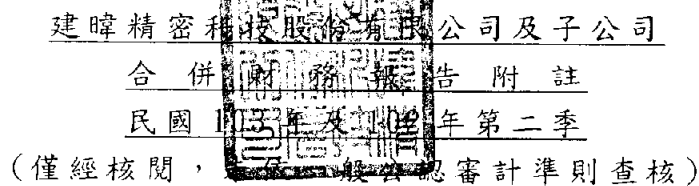 建暐精密科技股份有限公司及子公司
合併財務報告附註
民國103年及102年第二季
(僅經核閱,未依一般公認審計準則查核)